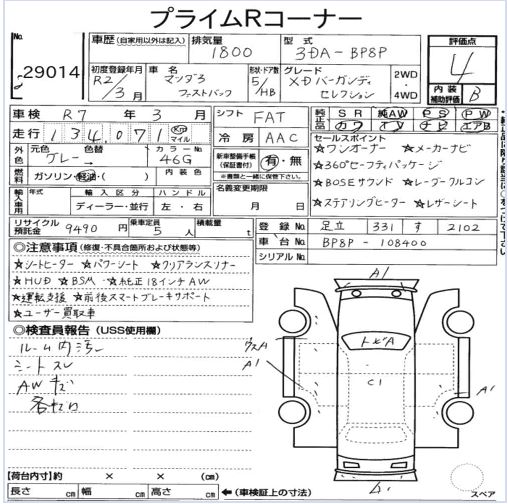 プライムRコーナー
No.
29014
車歴 (自家用以外は記入)
排気量
1800
型式
3DA-BP8P
評価点
4
内装補助評価
B
初度登録年月
R2/3月
車名
マツダ3
ファストバック
形状・ドア数
5/HB
グレード
XDバーガンディ
セレクション
2WD
4WD
車検 R7年3月
シフト FAT
走行 134,071 Km マイル
冷房 AAC
純正品
SR
純AW
PS
PW
カワ
ナビ
エアB
セールスポイント
☆ワンオーナー ☆メーカーナビ
☆360°セーフティパッケージ
☆BOSEサウンド ☆レーダークルコン
☆ステアリングヒーター ☆レザーシート
外色
元色
色替
グレー→
カラーNo.
46G
新車整備手帳
(保証書付)
有・無
※書類と一緒に保管下さい。
燃料
ガソリン・軽油・( )
内装色
名義変更期限
月 日
輸入車用
年式
輸入区分
ハンドル
ディーラー・並行
左・右
リサイクル預託金
9490円
乗車定員
5人
積載量
t
登録No. 足立 331 す 2102
車台No. BP8P-108400
シリアルNo.
◎注意事項 (修復・不具合箇所および状態等)
☆シートヒーター ☆パワーシート ☆クリアランスソナー
☆HUD ☆BSM ☆純正18インチAW
☆運転支援 ☆前後スマートブレーキサポート
☆ユーザー買取車
◎検査員報告 (USS使用欄)
ルーム内汚レ
シートスレ
AWキズ
各セロ
A1
ウスA
A1
トビA
C1
A1
スペア
【荷台内寸】約 × × (cm)
長さ cm 幅 cm 高さ cm ←(車検証上の寸法)